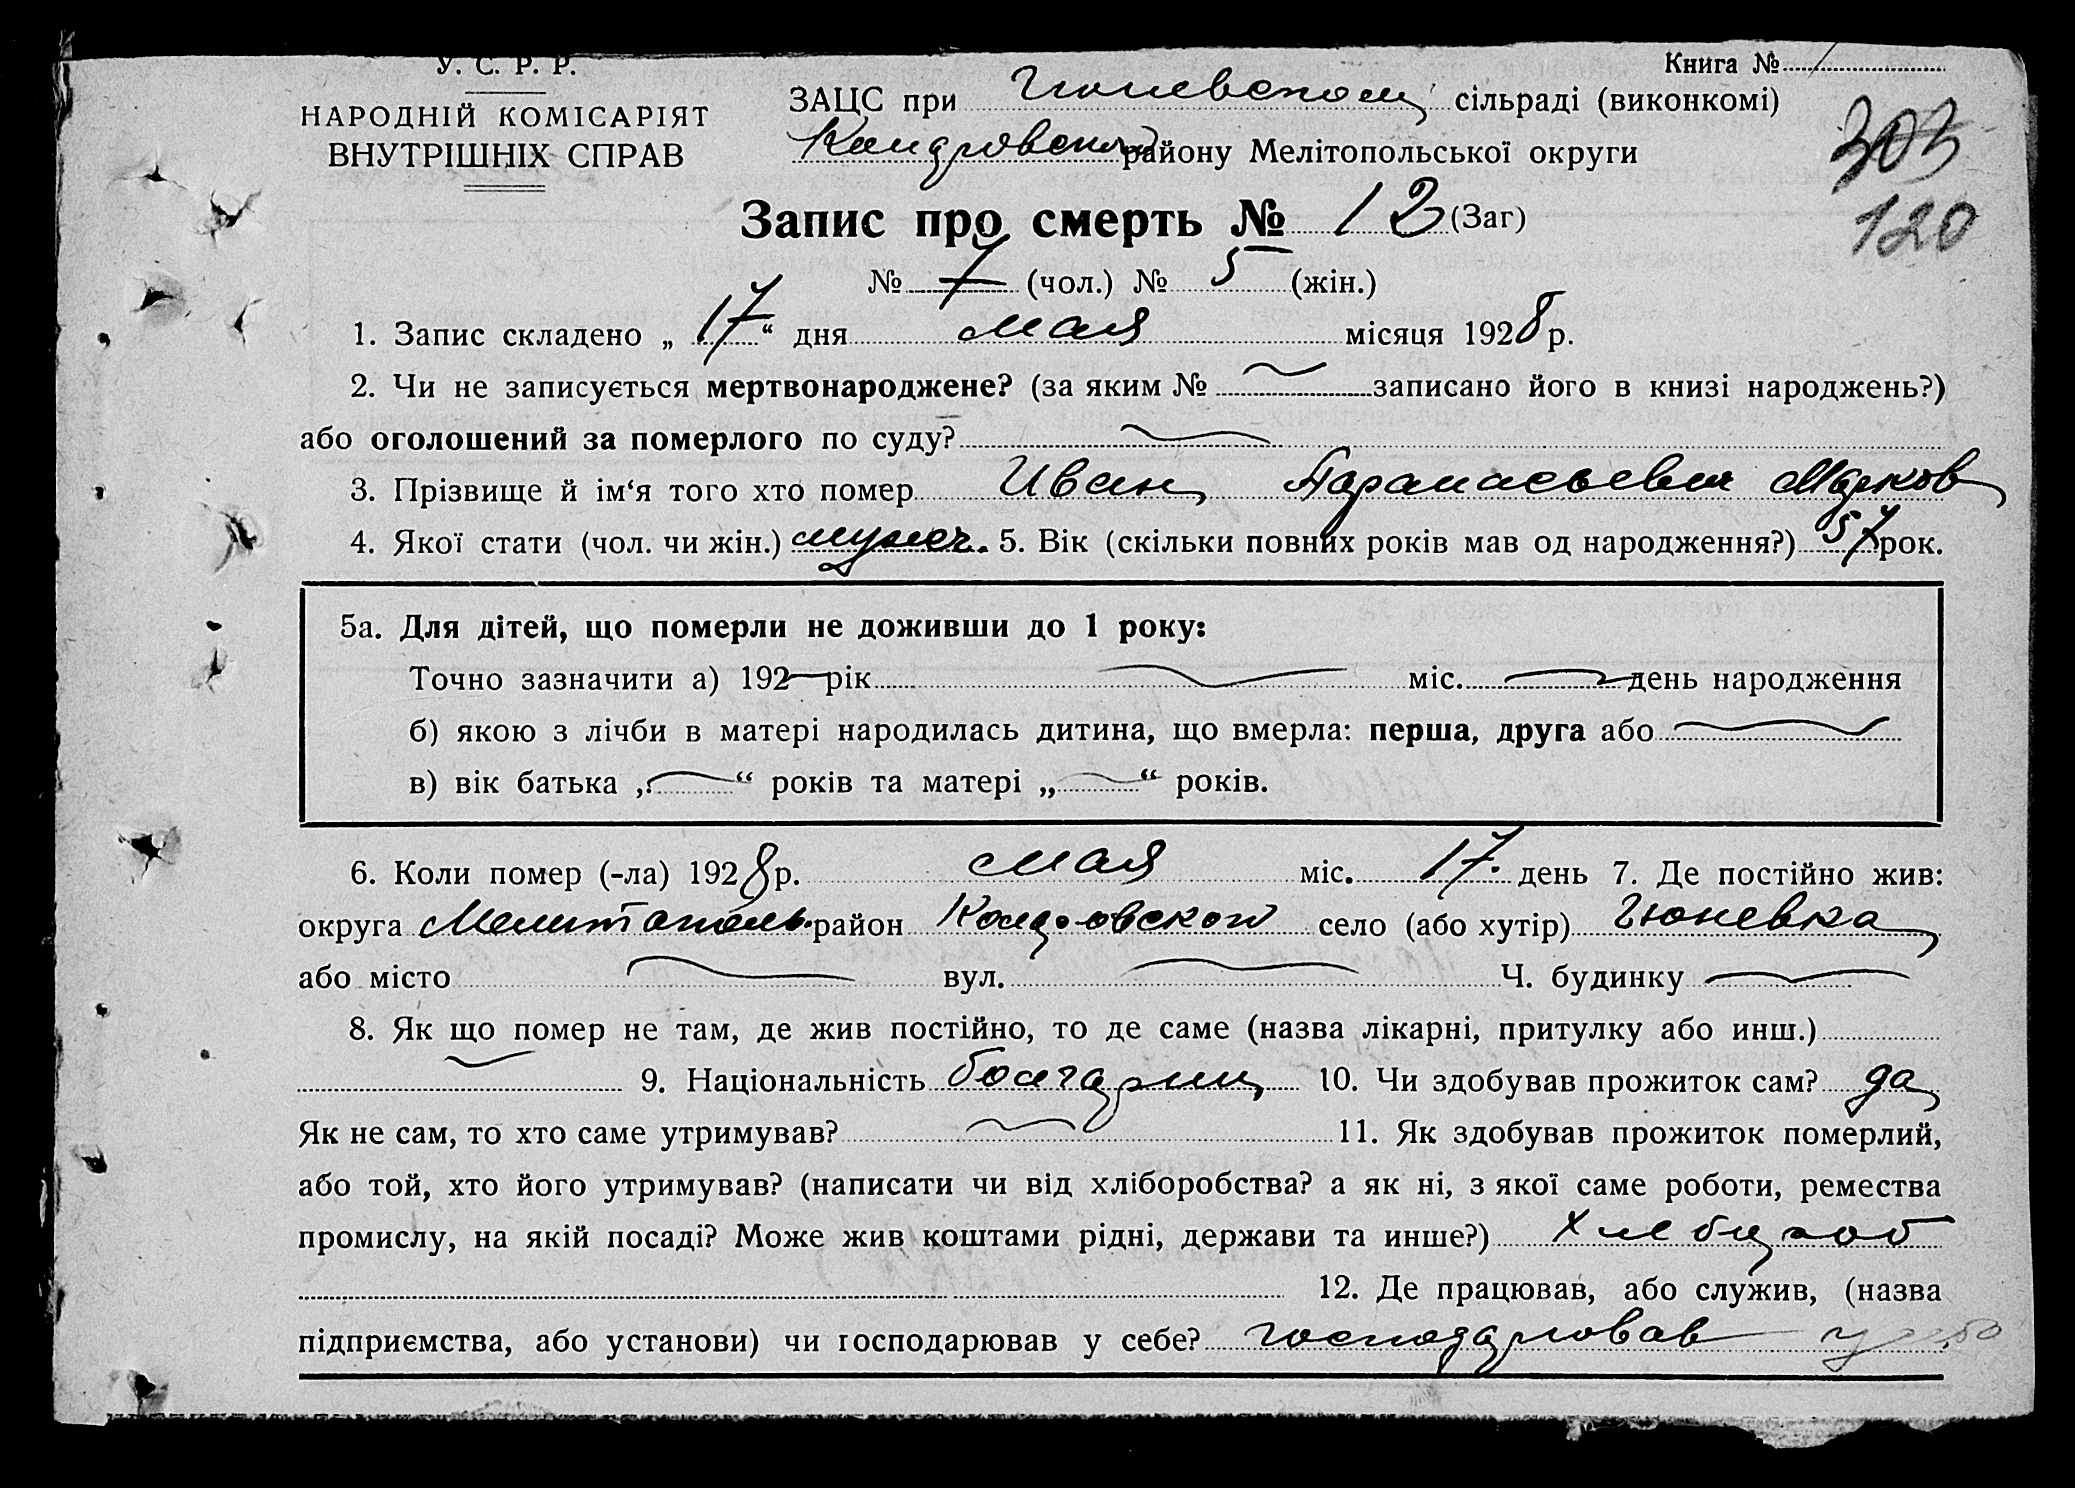 У. С. Р. Р.
НАРОДНІЙ КОМІСАРІЯТ
ВНУТРІШНІХ СПРАВ
Книга № 1
ЗАЦС при Гюневском сільраді (виконкомі)
районy Мелітопольської округи
303
120
Запис про смерть № 12 (Заг)
№ 7 (чол.) № 5 (жін.)
1. Запис складено „ 17 “ дня мая місяця 1928 р.
2. Чи не записується мертвонароджене? (за яким № записано його в книзі народжень?)
або оголошений за померлого по суду?
3. Прізвище й ім‘я того хто помер Иван Марков
4. Якої стати (чол. чи жін.) мужеч. 5. Вік (скільки повних років мав од народження?) 57 рок.
5а. Для дітей, що померли не доживши до 1 року:
Точно зазначити а) 192 рік міс. день народження
б) якою з лічби в матері народилась дитина, що вмерла: перша, друга або
в) вік батька „ “ років та матері „ “ років.
6. Коли помер (-ла) 1928 р. мая міс. 17 день 7. Де постійно жив:
округа Мелитополь. район село (або хутір) Гюневка
або місто вул. Ч. будинку
8. Як що помер не там, де жив постійно, то де саме (назва лікарні, притулку або инш.)
9. Національність болгарин 10. Чи здобував прожиток сам? да
Як не сам, то хто саме утримував? 11. Як здобував прожиток померлий,
або той, хто його утримував? (написати чи від хліборобства? а як ні, з якої саме роботи, ремества
промислу, на якій посаді? Може жив коштами рідні, держави та инше?)
12. Де працював, або служив, (назва
підприємства, або установи) чи господарював у себе? господарював у себе